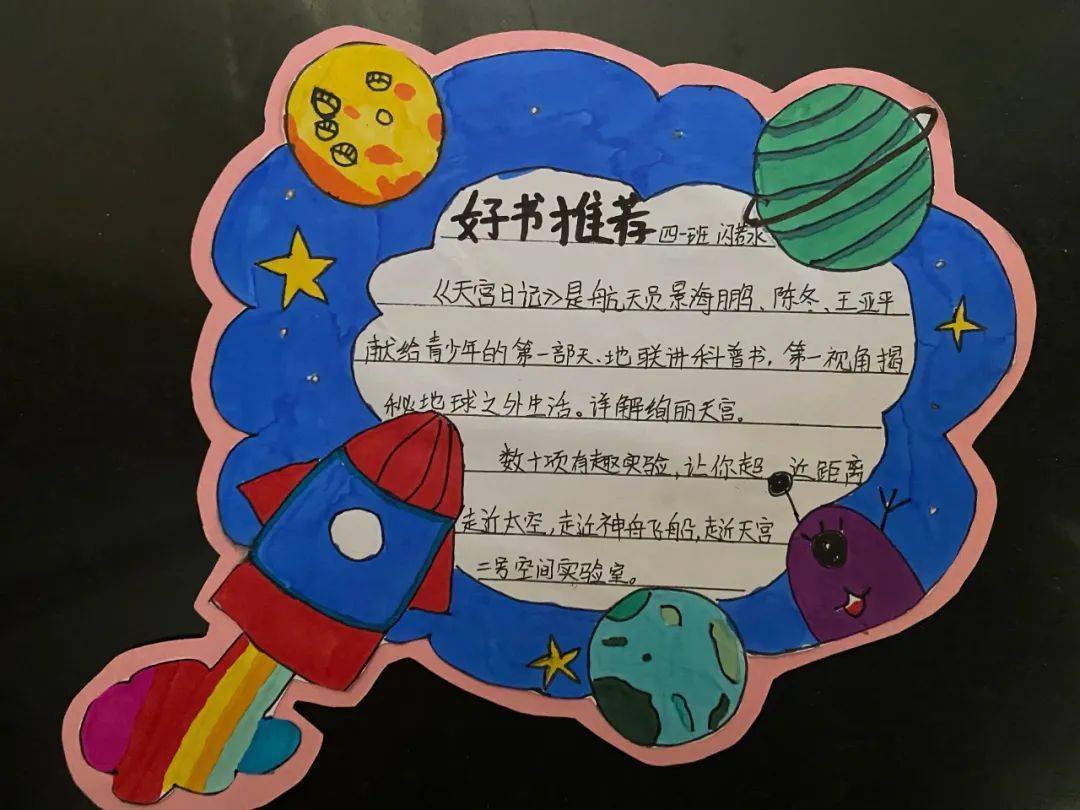 好书推荐 四一班 闪若水
《天宫日记》是航天员景海鹏、陈冬、王亚平
献给青少年的第一部天、地联讲科普书,第一视角揭
秘地球之外生活。详解绚丽天宫。
数十项有趣实验,让你超近距离
走近太空,走近神舟飞船,走近天宫
二号空间实验室。